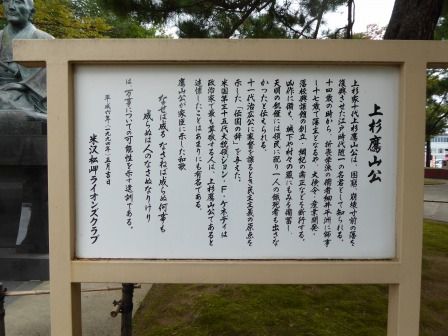 上杉鷹山公
上杉家十代上杉鷹山公は、困窮、崩壊寸前の藩を
復興させた江戸時代随一の名君として知られる。
十四歳の時から、折衷学派の儒者細井平洲に師事
し十七歳で藩主となるや、大倹令、産業開発、
藩校興譲館の創立、綱紀の粛正などを断行する。
凶作に備え、城下や村々の蔵にもみを備蓄し、
天明の飢饉には領民に配り一人の餓死者も出さな
かったと伝えられる。
十一代治広公に家督を譲るとき民主主義の原点を
示した「伝国の辞」を与えた。
米国第三十五代大統領ジョン・F・ケネディは
政治家で最も尊敬する人は、上杉鷹山公であると
述懐したことはあまりにも有名である。
鷹山公が家臣に示した和歌
なせば成る なさねば成らぬ何事も
成らぬは人のなさぬなりけり
は、万事についての可能性を示す遺訓である。
平成六年(一九九四)五月吉日
米沢松岬ライオンズクラブ